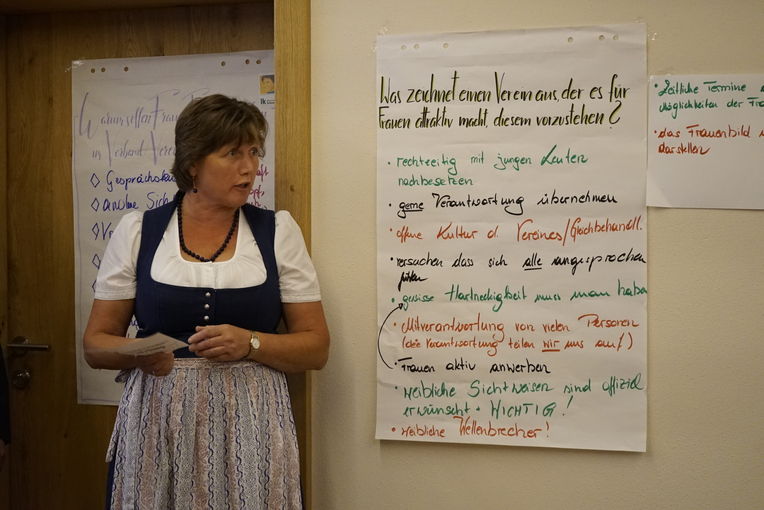 Warum sollen Fra
in Verband Verei
◊ Gesprächsku
◊ andere Sich
◊ Ver
lk
Was zeichnet einen Verein aus, der es für
Frauen attraktiv macht, diesem vorzustehen?
• rechtzeitig mit jungen Leuten
nachbesetzen
• gerne Verantwortung übernehmen
• offene Kultur d. Vereines/Gleichbehandl.
• versuchen dass sich alle angesprochen
fühlen
• gewisse Hartneckigkeit muss man haben
• Mitverantwortung von vielen Personen
(die Verantwortung teilen wir uns auf!)
• Frauen aktiv anwerben
• weibliche Sichtweisen sind offiziel
erwünscht + WICHTIG!
• weibliche Wellenbrecher!
• Zeitliche Termine
möglichkeiten der Fra
• das Frauenbild
darstellen